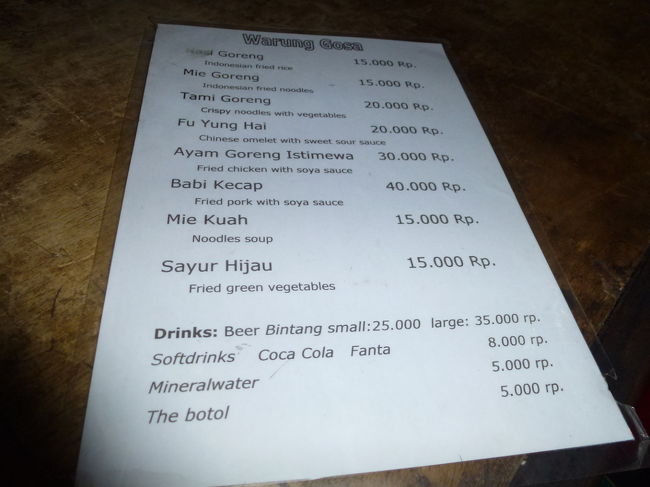 Warung Gosa
Goreng 15.000 Rp.
Indonesian fried rice
Mie Goreng 15.000 Rp.
Indonesian fried noodles
Tami Goreng 20.000 Rp.
Crispy noodles with vegetables
Fu Yung Hai 20.000 Rp.
Chinese omelet with sweet sour sauce
Ayam Goreng Istimewa 30.000 Rp.
Fried chicken with soya sauce
Babi Kecap 40.000 Rp.
Fried pork with soya sauce
Mie Kuah 15.000 Rp.
Noodles soup
Sayur Hijau 15.000 Rp.
Fried green vegetables
Drinks: Beer Bintang small:25.000 large: 35.000 rp.
Softdrinks Coca Cola Fanta 8.000 rp.
Mineralwater 5.000 rp.
The botol 5.000 rp.